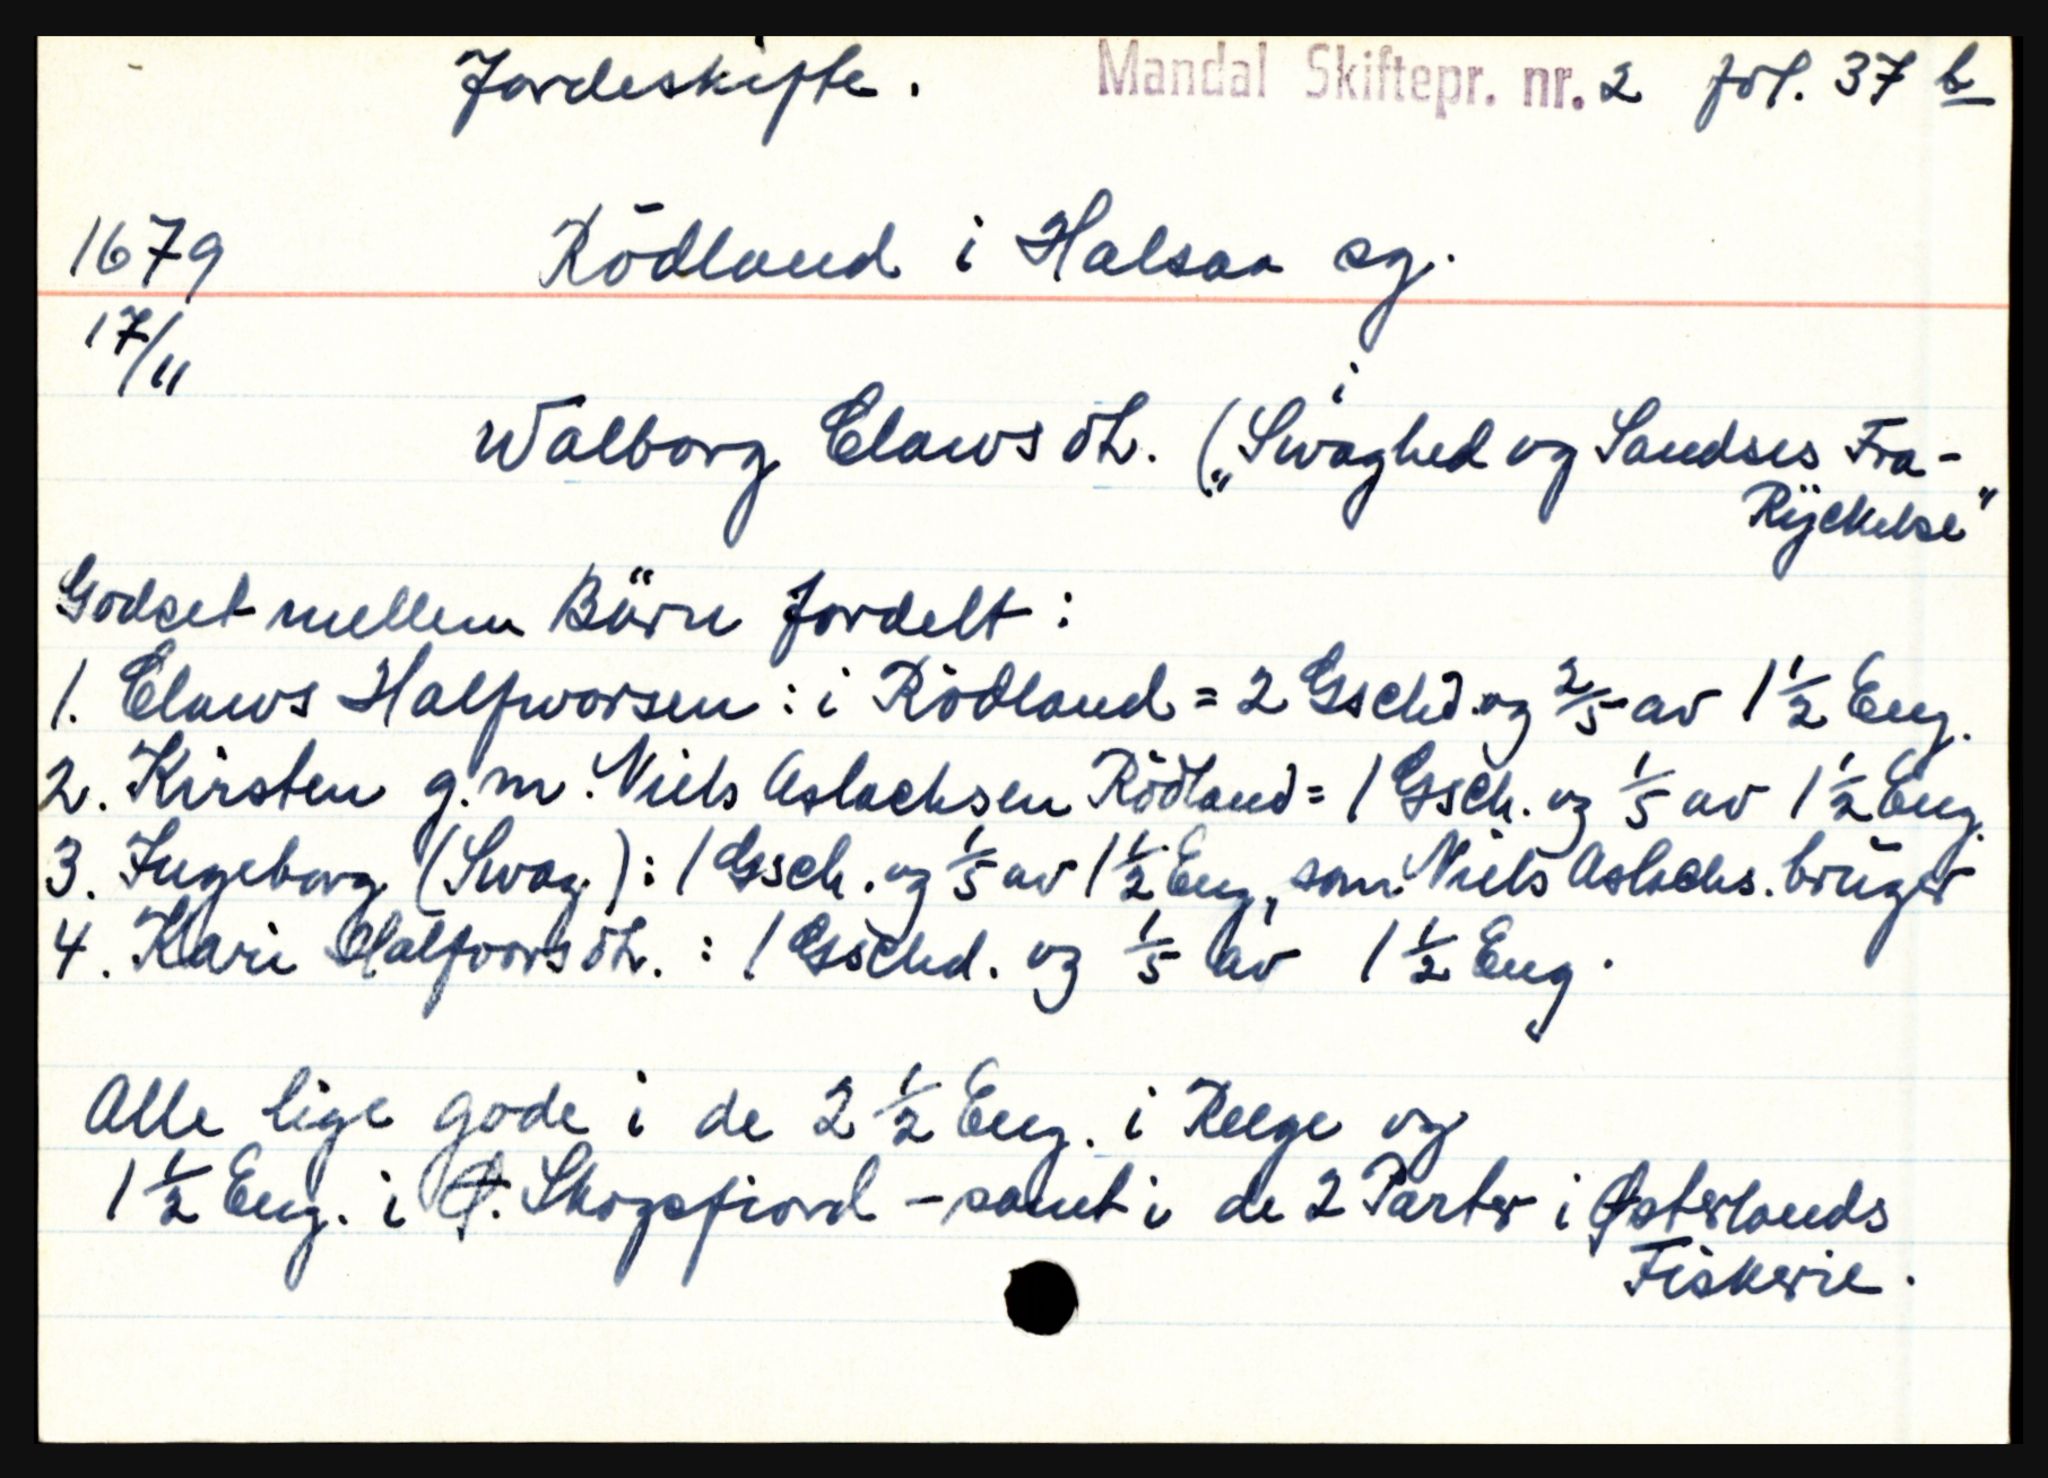 Jordeskifte. Mandal Skiftepr. nr. 2 fol. 37 b
1679 Rödland i Halsaa sg.
17/11
Walborg Clawsdtr. („i Swaghed og Sandses Fra-
Rÿckelse"
Godset mellem Börn fordelt:
1. Claws Halfworsen: i Rödland = 2 Gschd. og 2/5 av 1 1/2 Eng.
2. Kirsten g.m. Niels Aslachsen Rödland = 1 Gsch. og 1/5 av 1 1/2 Eng.
3. Ingeborg (Swag.): 1 Gsch. og 1/5 av 1 1/2 Eng, som Niels Aslachs. brüger
4. Kari Halfvorsdtr.: 1 Gschd. og 1/5 av 1 1/2 Eng.
Alle lige gode i de 2 1/2 Eng. i Reege og
1 1/2 Eng. i Ø. Skogsfiord - samt i de 2 Parter i Østerlands
Fiskerie.